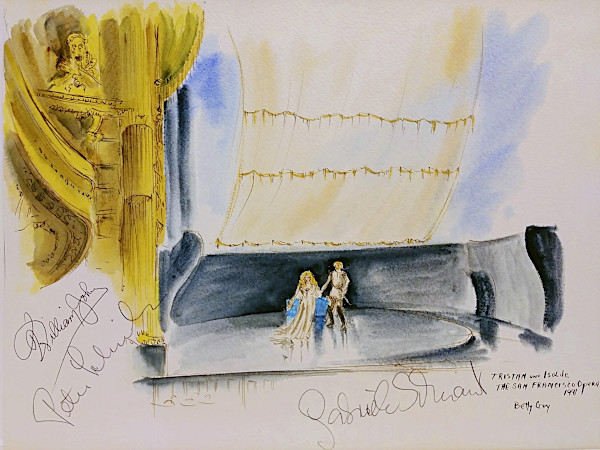 William Johns
Peter Schneider
Gabriele Schnaut
TRISTAN und Isolde
THE SAN FRANCISCO OPERA
1991
Betty Guy